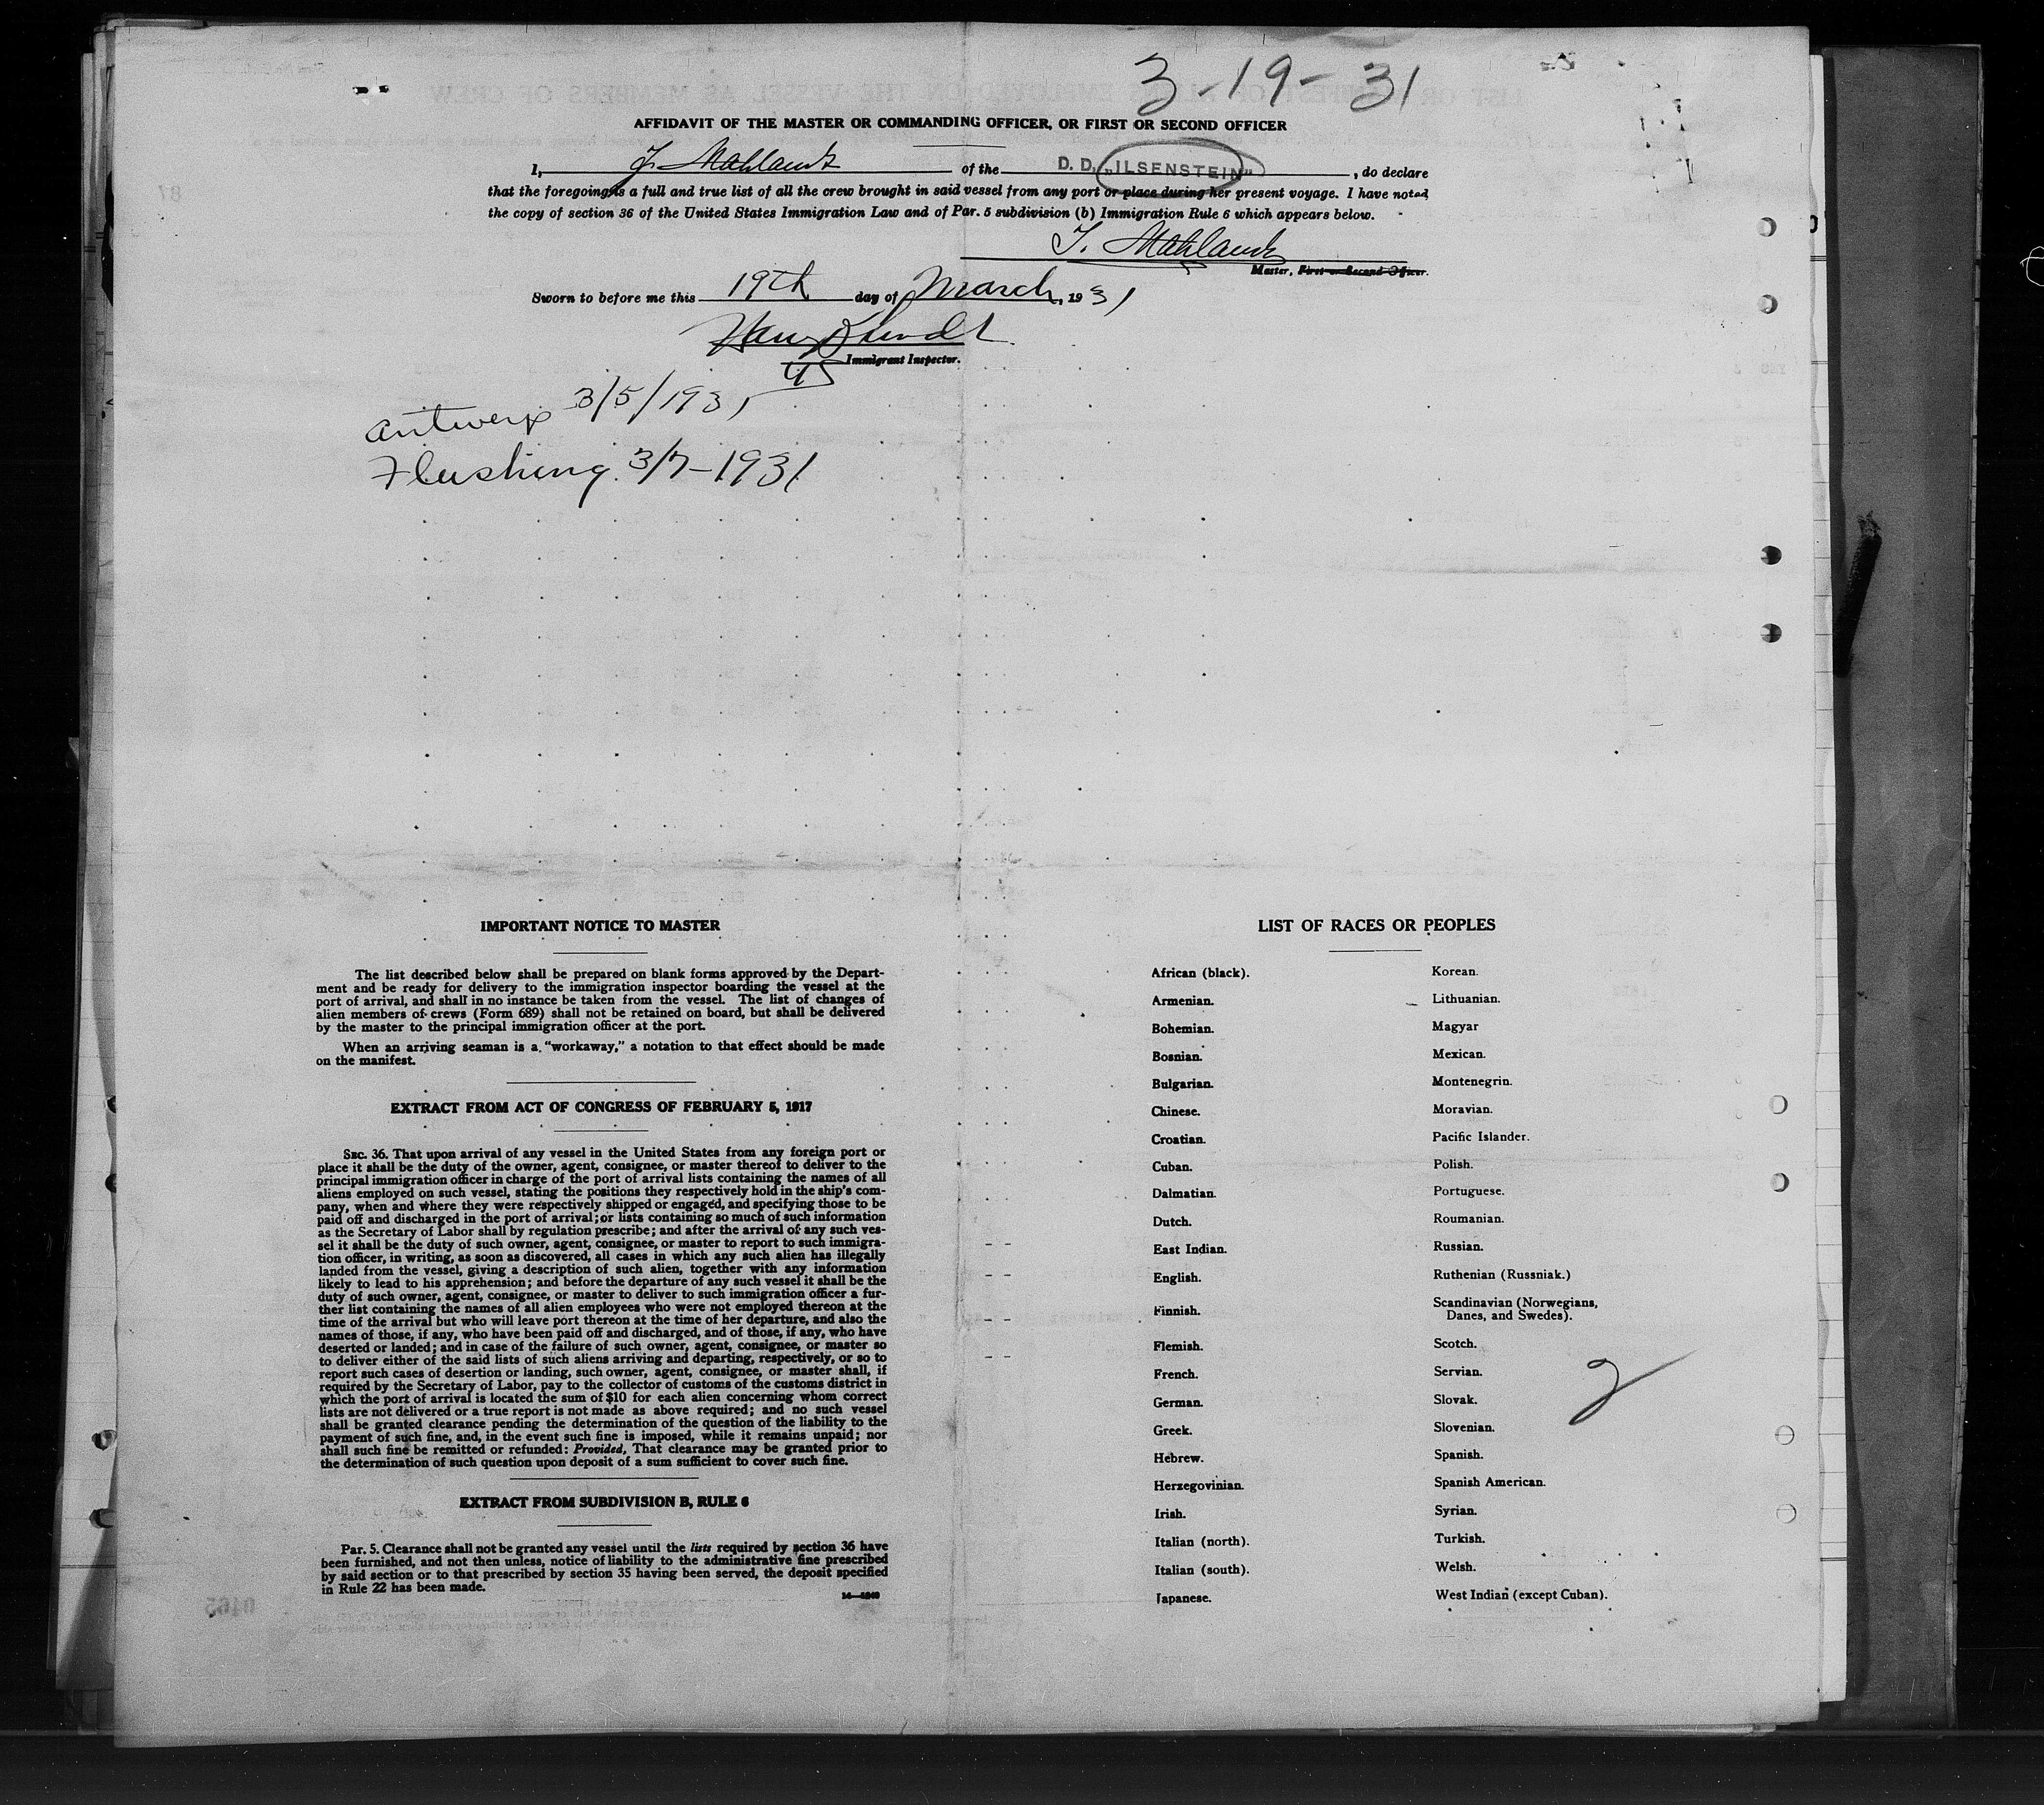 3-19-31
AFFIDAVIT OF THE MASTER OR COMMANDING OFFICER, OR FIRST OR SECOND OFFICER
I, of the D. D. „ILSENSTEIN", do declare
that the foregoing is a full and true list of all the crew brought in said vessel from any port or place during her present voyage. I have noted
the copy of section 36 of the United States Immigration Law and of Par. 5 subdivision (b) Immigration Rule 6 which appears below.
Master, First or Second Officer.
Sworn to before me this 19th day of March, 1931
Immigrant Inspector.
Antwerp 3/5/1931
Flushing 3/7-1931
IMPORTANT NOTICE TO MASTER
The list described below shall be prepared on blank forms approved by the Depart-
ment and be ready for delivery to the immigration inspector boarding the vessel at the
port of arrival, and shall in no instance be taken from the vessel. The list of changes of
alien members of crews (Form 689) shall not be retained on board, but shall be delivered
by the master to the principal immigration officer at the port.
When an arriving seaman is a "workaway," a notation to that effect should be made
on the manifest.
EXTRACT FROM ACT OF CONGRESS OF FEBRUARY 5, 1917
SEC. 36. That upon arrival of any vessel in the United States from any foreign port or
place it shall be the duty of the owner, agent, consignee, or master thereof to deliver to the
principal immigration officer in charge of the port of arrival lists containing the names of all
aliens employed on such vessel, stating the positions they respectively hold in the ship's com-
pany, when and where they were respectively shipped or engaged, and specifying those to be
paid off and discharged in the port of arrival; or lists containing so much of such information
as the Secretary of Labor shall by regulation prescribe; and after the arrival of any such ves-
sel it shall be the duty of such owner, agent, consignee, or master to report to such immigra-
tion officer, in writing, as soon as discovered, all cases in which any such alien has illegally
landed from the vessel, giving a description of such alien, together with any information
likely to lead to his apprehension; and before the departure of any such vessel it shall be the
duty of such owner, agent, consignee, or master to deliver to such immigration officer a fur-
ther list containing the names of all alien employees who were not employed thereon at the
time of the arrival but who will leave port thereon at the time of her departure, and also the
names of those, if any, who have been paid off and discharged, and of those, if any, who have
deserted or landed; and in case of the failure of such owner, agent, consignee, or master so
to deliver either of the said lists of such aliens arriving and departing, respectively, or so to
report such cases of desertion or landing, such owner, agent, consignee, or master shall, if
required by the Secretary of Labor, pay to the collector of customs of the customs district in
which the port of arrival is located the sum of $10 for each alien concerning whom correct
lists are not delivered or a true report is not made as above required; and no such vessel
shall be granted clearance pending the determination of the question of the liability to the
payment of such fine, and, in the event such fine is imposed, while it remains unpaid; nor
shall such fine be remitted or refunded: Provided, That clearance may be granted prior to
the determination of such question upon deposit of a sum sufficient to cover such fine.
EXTRACT FROM SUBDIVISION B, RULE 6
Par. 5. Clearance shall not be granted any vessel until the lists required by section 36 have
been furnished, and not then unless, notice of liability to the administrative fine prescribed
by said section or to that prescribed by section 35 having been served, the deposit specified
in Rule 22 has been made.
LIST OF RACES OR PEOPLES
African (black).
Armenian.
Bohemian.
Bosnian.
Bulgarian.
Chinese.
Croatian.
Cuban.
Dalmatian.
Dutch.
East Indian.
English.
Finnish.
Flemish.
French.
German.
Greek.
Hebrew.
Herzegovinian.
Irish.
Italian (north).
Italian (south).
Japanese.
Korean.
Lithuanian.
Magyar
Mexican.
Montenegrin.
Moravian.
Pacific Islander.
Polish.
Portuguese.
Roumanian.
Russian.
Ruthenian (Russniak.)
Scandinavian (Norwegians,
Danes, and Swedes).
Scotch.
Servian.
Slovak.
Slovenian.
Spanish.
Spanish American.
Syrian.
Turkish.
Welsh.
West Indian (except Cuban).